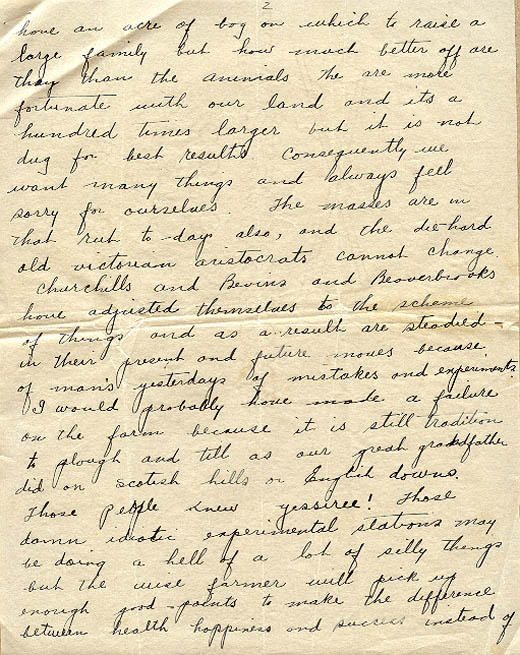 2
have an acre of bog on which to raise a
large family but how much better off are
they than the animals the are more
fortunate with our land and its a
hundred times larger but it is not
dug for best results. Consequently we
want many things and always fell
sorry for ourselves. The masses are in
that rut to-day also, and the die-hard
old victorian aristocrats cannot change.
Churchills and Bevins and Beaverbrooks
have adjusted themselves to the scheme
of things and as a result are steadied
in their present and future moves because
of man's yesterdays of mistakes and experiments.
I would probably have made a failure
on the farm because it is still tradition
to plough and till as our great grandfather
did on Scotish hills or English downs.
Those people knew yessiree! Those
damn idiotic experimental stations may
be doing a hell of a lot of silly things
but the wise farmer will pick up
enough good-points to make the difference
between health happiness and success instead of